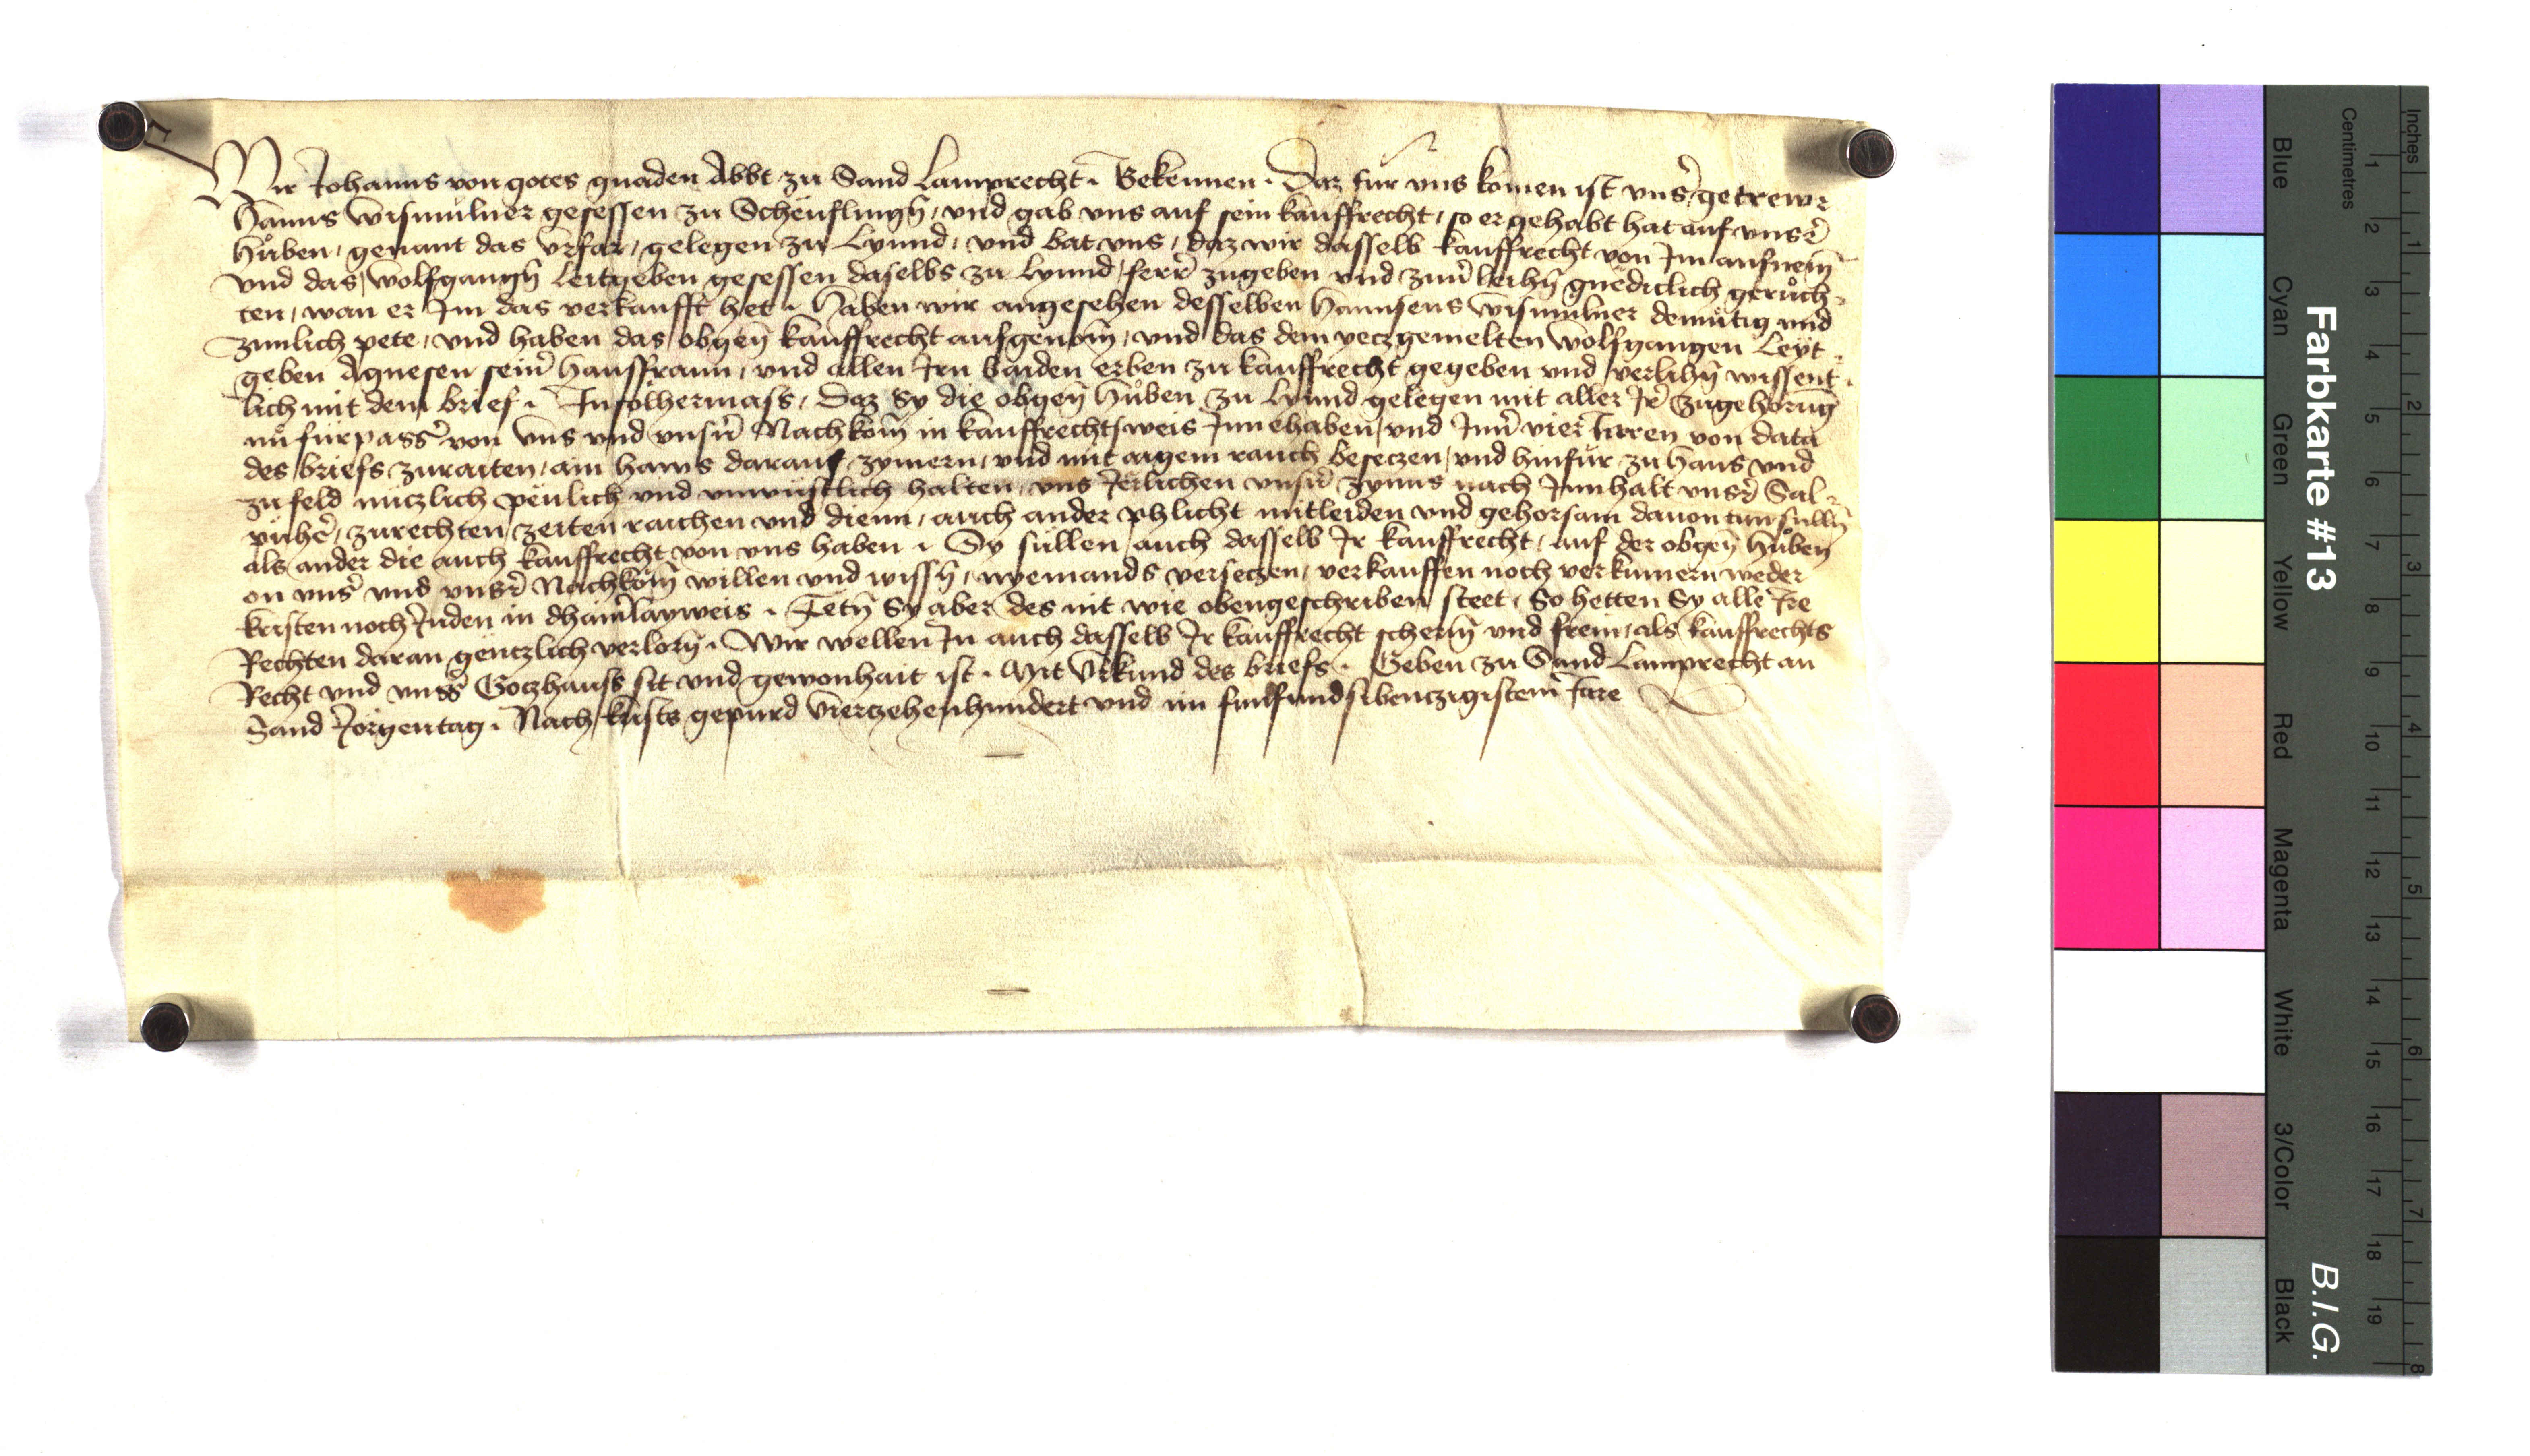 Wir Johanns von gotes gnaden Abbt zu Sand Lamprecht. Bekennen. Daz fur vns komen ist vnsˀ getrewr
Hanns Wismulner gesessen zu Scheuflingn̄, vnd gab vns auf sein kauffrecht, so er gehabt hat auf vnsˀer
Huͦben, genant das Vrfar, gelegen zu Lynnd, vnd bat vns, daz wir dasselb kauffrecht von Im aufnem̄
vnd das, Wolfgangn̄ Leitgeben gesessen daselbs zu Lynnd, ferrˀ zugeben vnd zuuˀleihn̄ gnediclich geruͦch-
ten, wan er Im das verkaufft het. Haben wir angesehen desselben Hannsens Wismulner demutig vnd
zimlich pete, vnd haben das obgen̄ kauffrecht aufgenom̄, vnd das dem yeczgemelten Wolfgangen Leyt-
geben Agnesen seinˀ hausfraun, vnd allen Irn baiden erben zu kauffrecht gegeben vnd verlihn̄ wissent-
lich mit dem brief. In solhermass, Daz Sy die obgen̄ Huͦben zu Lynnd gelegen mit aller Irˀ zugehorūg
nuͦ furpassˀ von vns vnd vnsˀn Nachkom̄ in kauffrechtsweis Innehaben, vnd Innˀ vier Jaren von data
des briefs zuraiten, ain haws darauf zymern, vnd mit aigem rauch beseczen, vnd hinfur zu haus vnd
zu feld nuczlich peulich vnd vnwustlich halten, vns Jerlichen vnsˀn zynns nach Innhalt vnsˀer Sal-
puͤhˀer, zurechten zeiten raichen vnd dienn, auch ander phlicht mitleiden vnd gehorsam dauon tun sulln̄
als ander die auch kauffrecht von vns haben. Sy sullen auch dasselb Ir kauffrecht, auf der obgen̄ huͦben
on vnsˀ vnd vnsˀer Nachkom̄ willen vnd wissn̄, nyemands verseczen, verkauffen noch verkumern weder
kristen noch Juden in dhainˀlayweis. Tetn̄ Sy aber des nit wie obengeschriben steet, So hetten Sy alle Ire
Rechten daran genczlich verlorn̄. Wir wellen In auch dasselb Ir kauffrecht scherm̄ vnd frein, als kauffrechts
Recht vnd vnsˀs Goczhauss sit vnd gewonhait ist. Mit Vrkund des briefs. Geben zu Sand Lamprecht an
Sand Jorgentag. Nach krists gepurd Vierzehenhundert vnd im funfundsibenczigistem Jare
Farbkarte #13
B.I.G.
Inches 1 2 3 4 5 6 7 8
Centimetres 1 2 3 4 5 6 7 8 9 10 11 12 13 14 15 16 17 18 19
Blue
Cyan
Green
Yellow
Red
Magenta
White
3/Color
Black